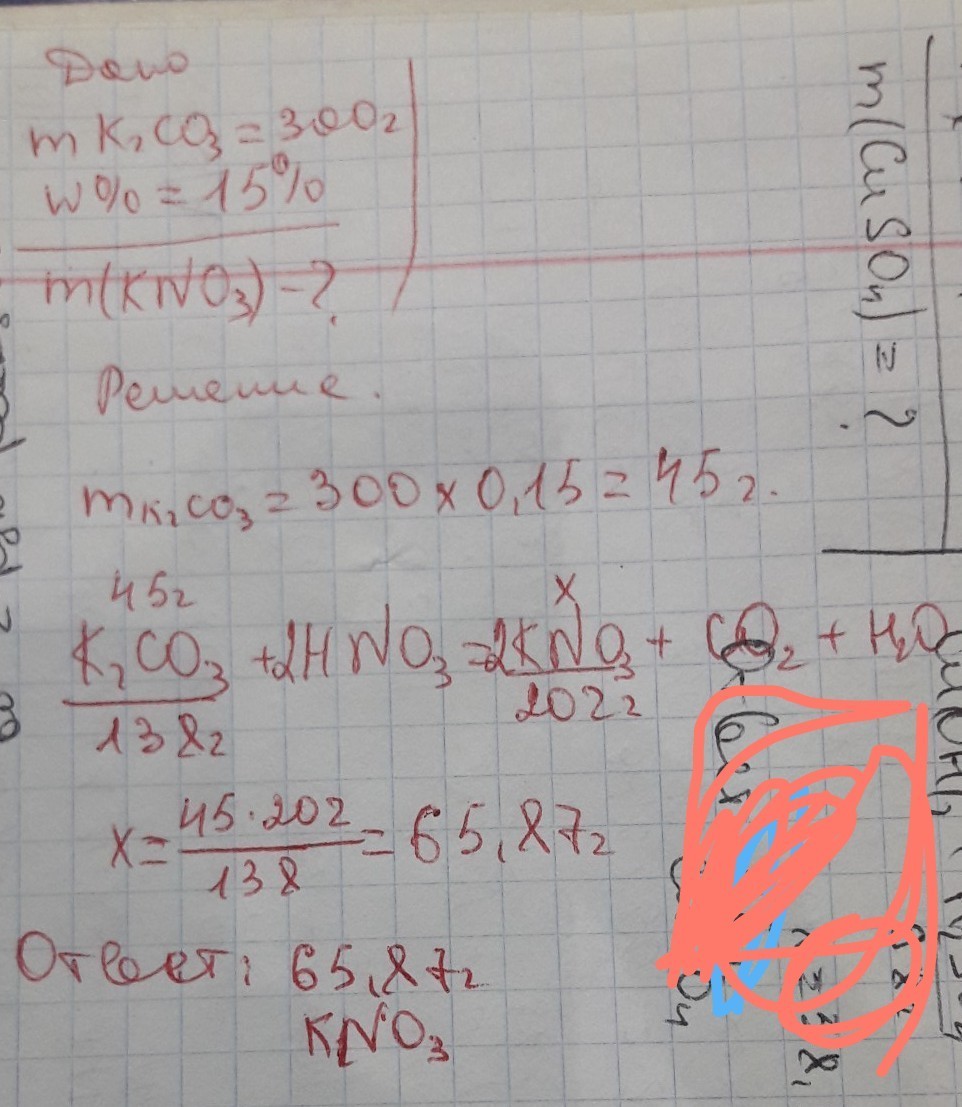 Дано
m K₂CO₃ = 300г
w% = 15%
m(KNO₃) - ?
Решение.
mK₂CO₃ = 300 × 0,15 = 45г.
45г x
K₂CO₃ + 2HNO₃ = 2KNO₃ + CO₂ + H₂O
138г 202г
x = 45·202 / 138 = 65,87г
Ответ: 65,87г
KNO₃
m(CuSO₄) = ?